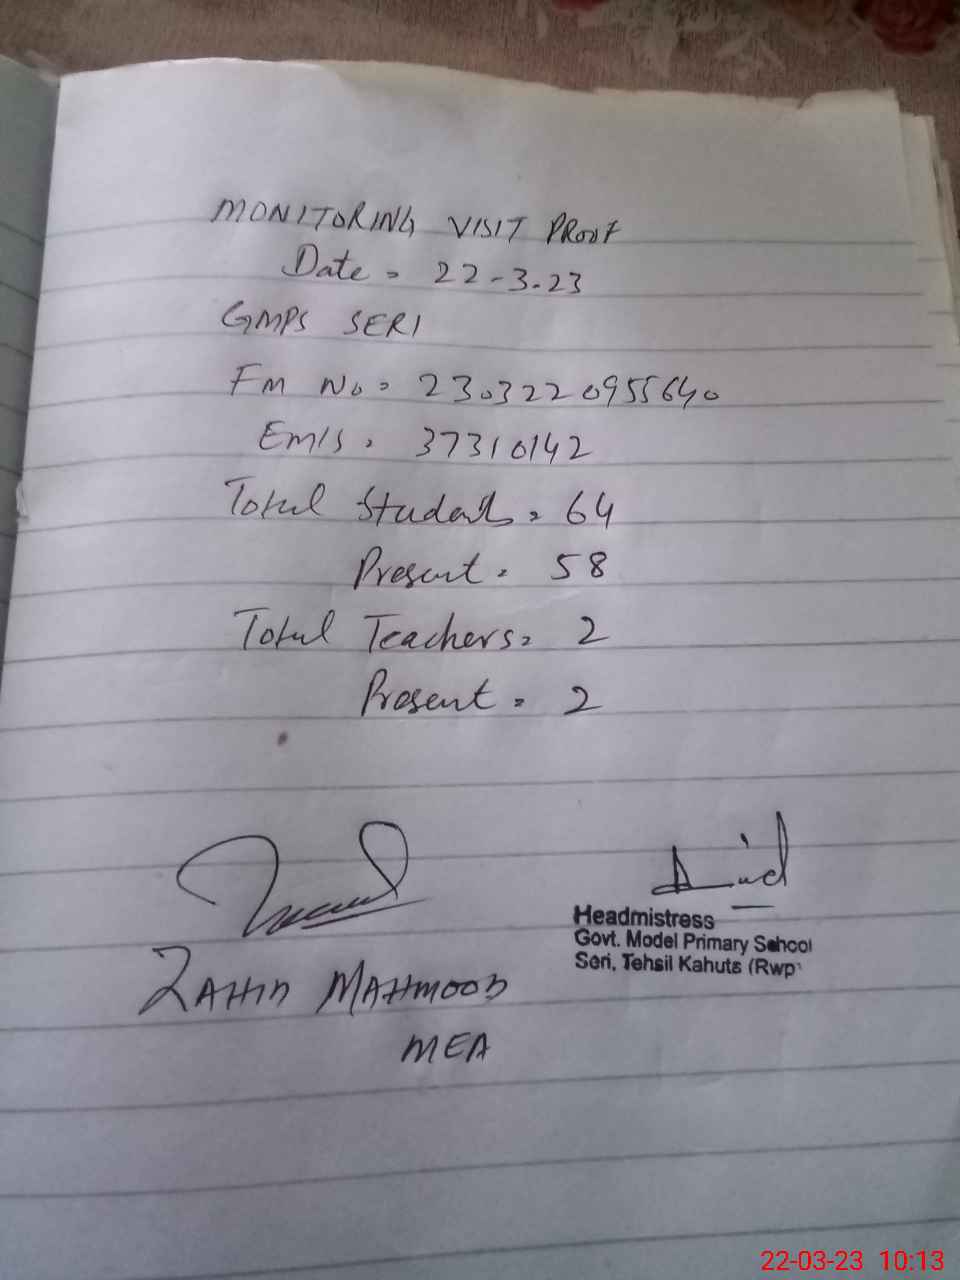 MONITORING VISIT PROOF
Date = 22-3-23
GMPS SERI
Fm No = 2303220955640
Emis = 37310142
Total Students = 64
Present = 58
Total Teachers = 2
Present = 2
ZAHID MAHMOOD
MEA
Headmistress
Govt. Model Primary School
Seri, Tehsil Kahuta (Rwp)
22-03-23 10:13